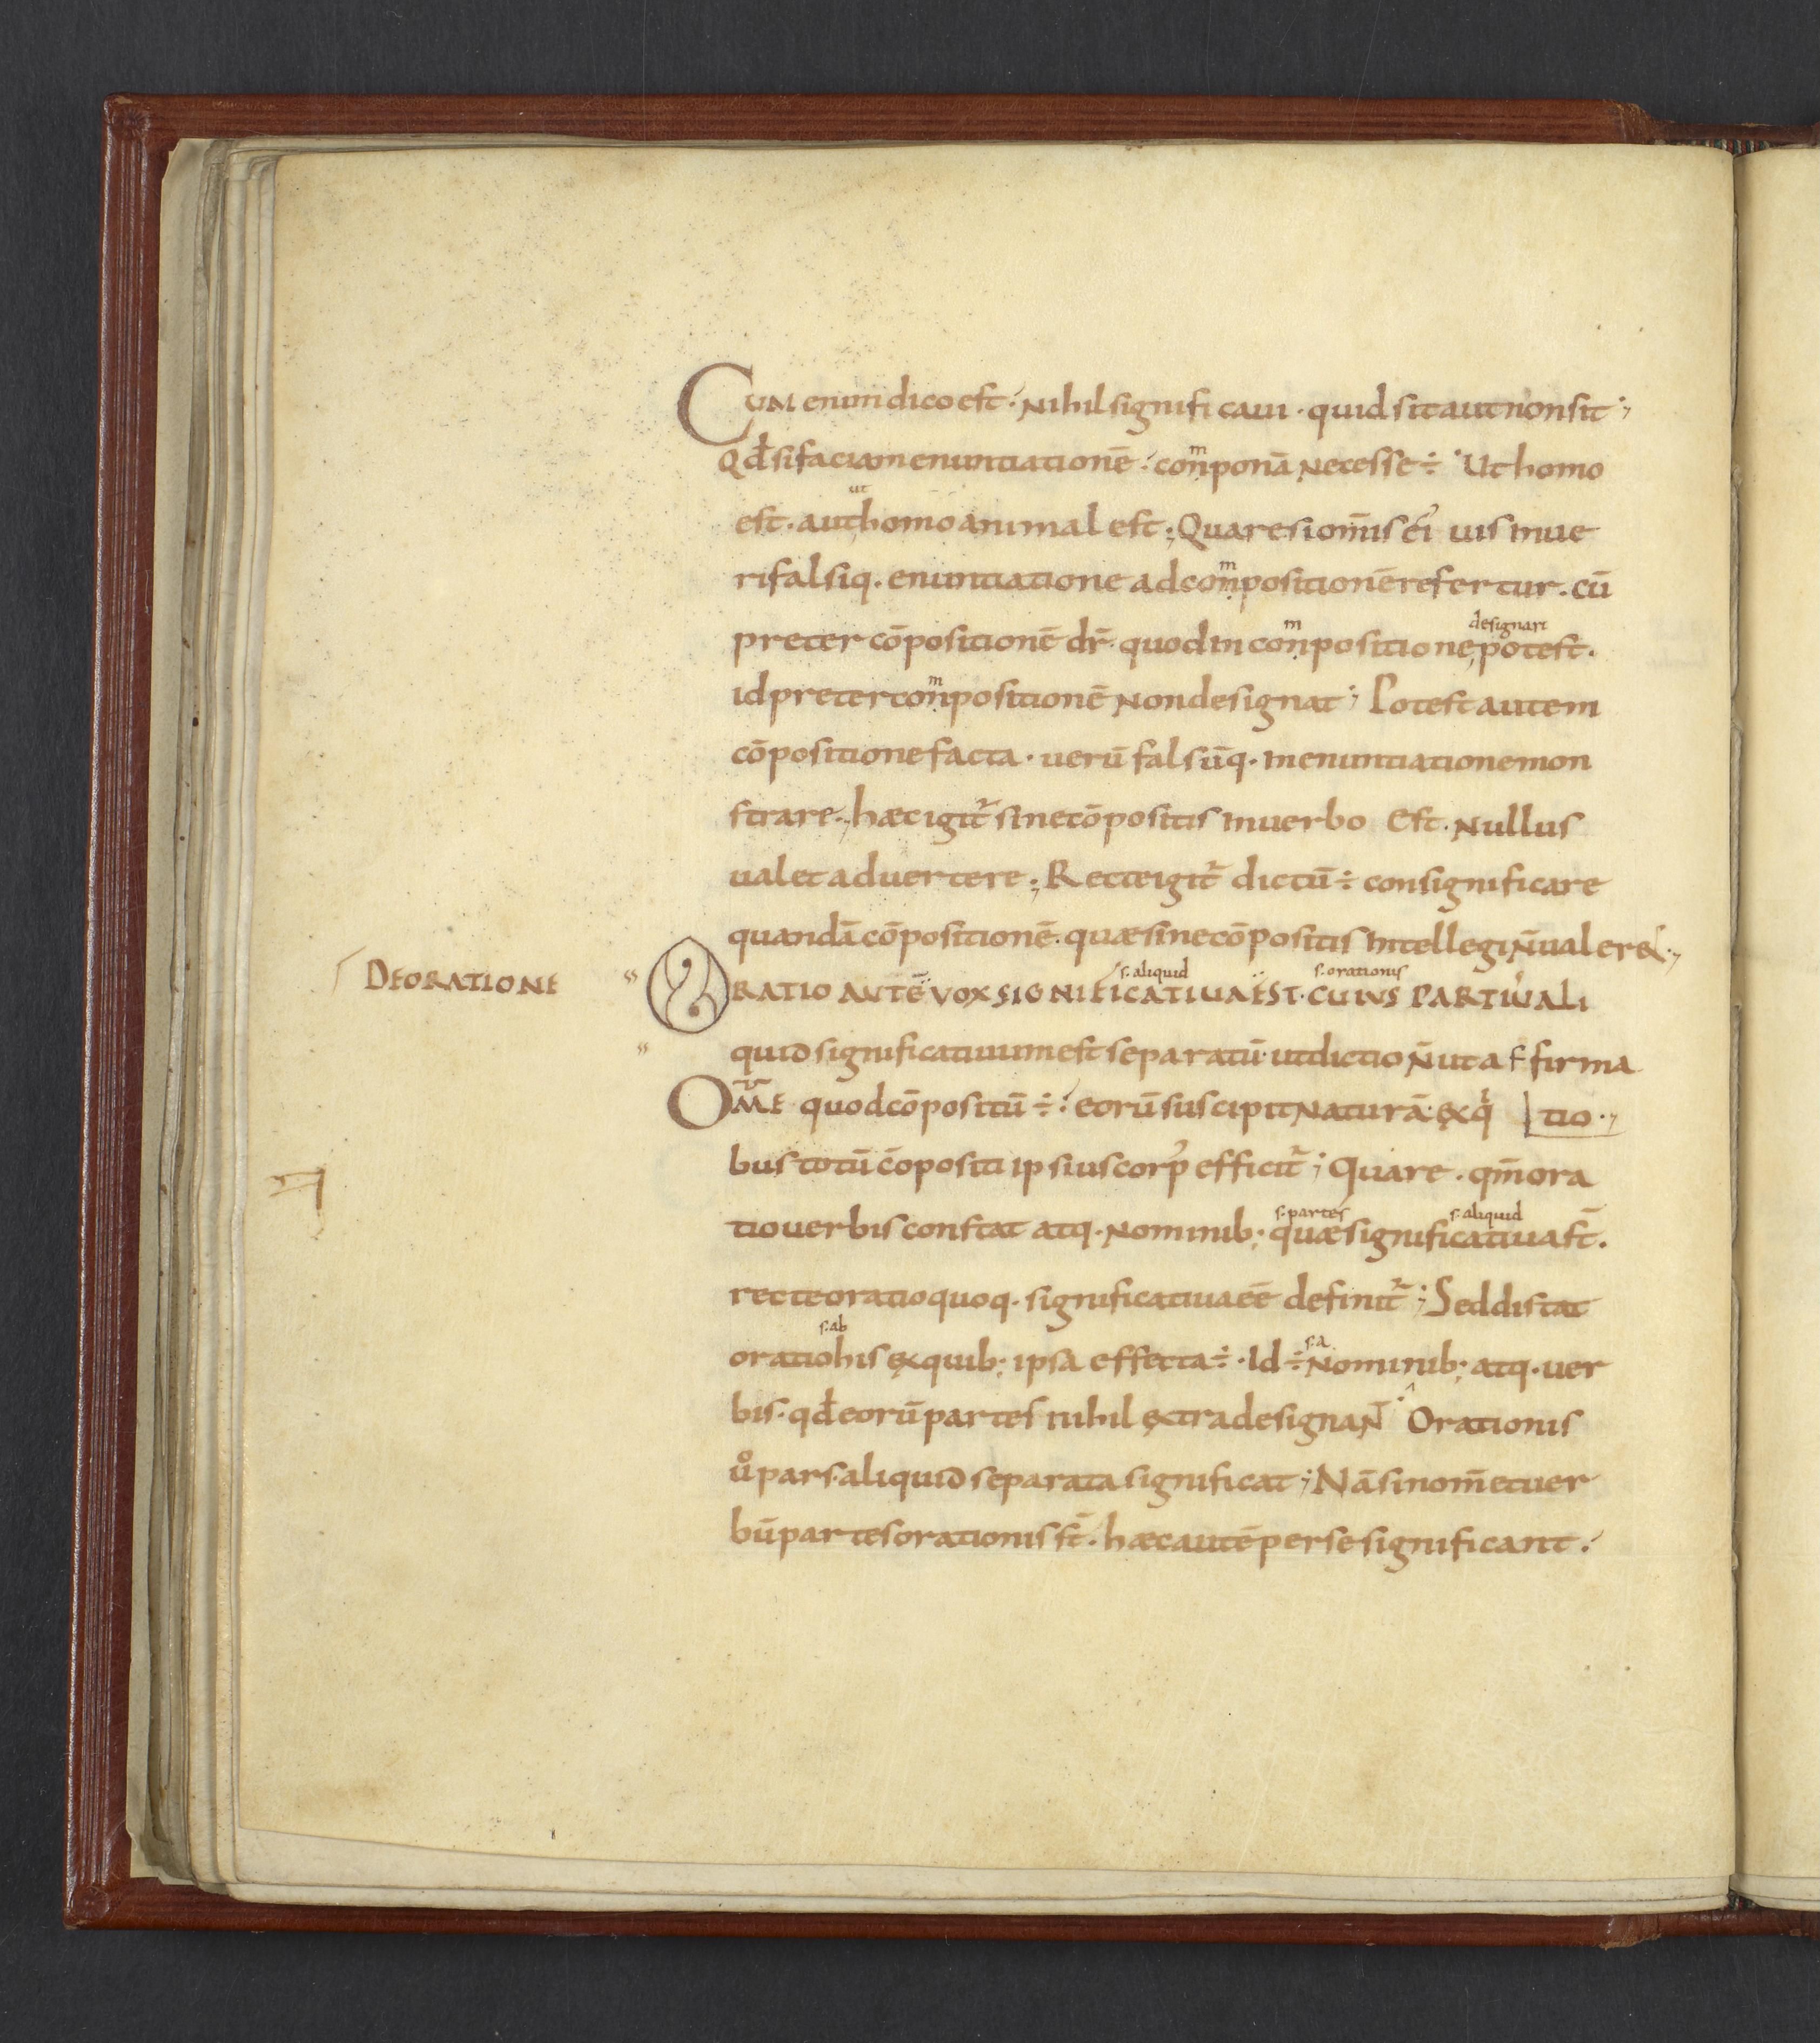 CUM enim dico est· Nihil significaui · quid sit aut non sit ;
Qđ si faciam enuntiationē· conponā Necesse ÷ · Ut homo
ut
est · aut homo animal est ; Quare si om̄is ei᾽ uis in ue
ri falsiq· enuntiatione ad conpositionē refertur · cū
designari
preter cōpositionē dr̄· quod in conpositione potest ·
id preter conpositionē Non designat ; Potest autem
cōpositione facta · uerū falsūq· in enuntiatione mon
strare · hæc igit᷑ sine cōpositis in uerbo Est · Nullus
ualet aduertere ; Recte igit᷑ dictū ÷ consignificare
quandā cōpositionē · quæ sine cōpositis intellegi N̄ ualere
s· aliquid s· orationis
DE ORATIONE
ORATIO AUTĒ VOX SIGNIFICATIUA EST · CUIUS PARTIŪ ALI
quid significatiuum est separatū· ut dictio N̄ ut affirma
OM̄E quod cōpositū ÷ · eorū suscipit Naturā· ex q᷑ tio ·
bus totū cōpositi ipsius corp᾽ efficit᷑ ; Quare · qm̄ ora
s· partes s· aliquid
tio uerbis constat atq· Nominib; quæ significatiua st̄ ·
recte oratio quoq· significatiua eē definit᷑ ; Sed distat
s· ab s· a
oratio his ex quib; ipsa effecta ÷ · Id ÷ Nominib; atq· uer
bis · qđ eorū partes nihil extra designaN̄T Orationis
uº pars aliquid separata significat ; Nā si nom̄ et uer
bū partes orationis st̄ · hæc autē per se significant ·